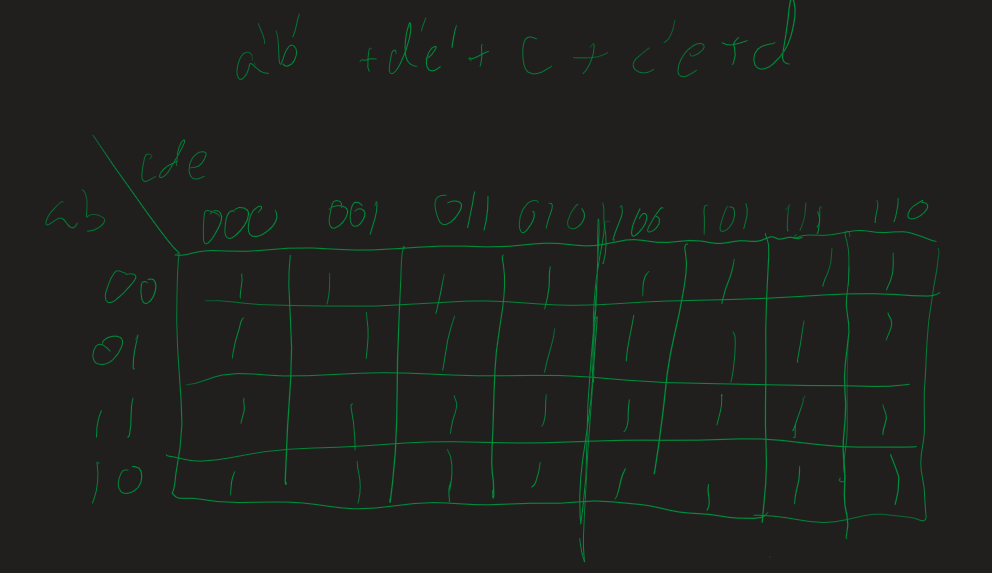 a'b' + d'e' + c + c'e + d
cde
ab
000 001 011 010 100 101 111 110
00 1 1 1 1 1 1 1 1
01 1 1 1 1 1 1 1 1
11 1 1 1 1 1 1 1 1
10 1 1 1 1 1 1 1 1